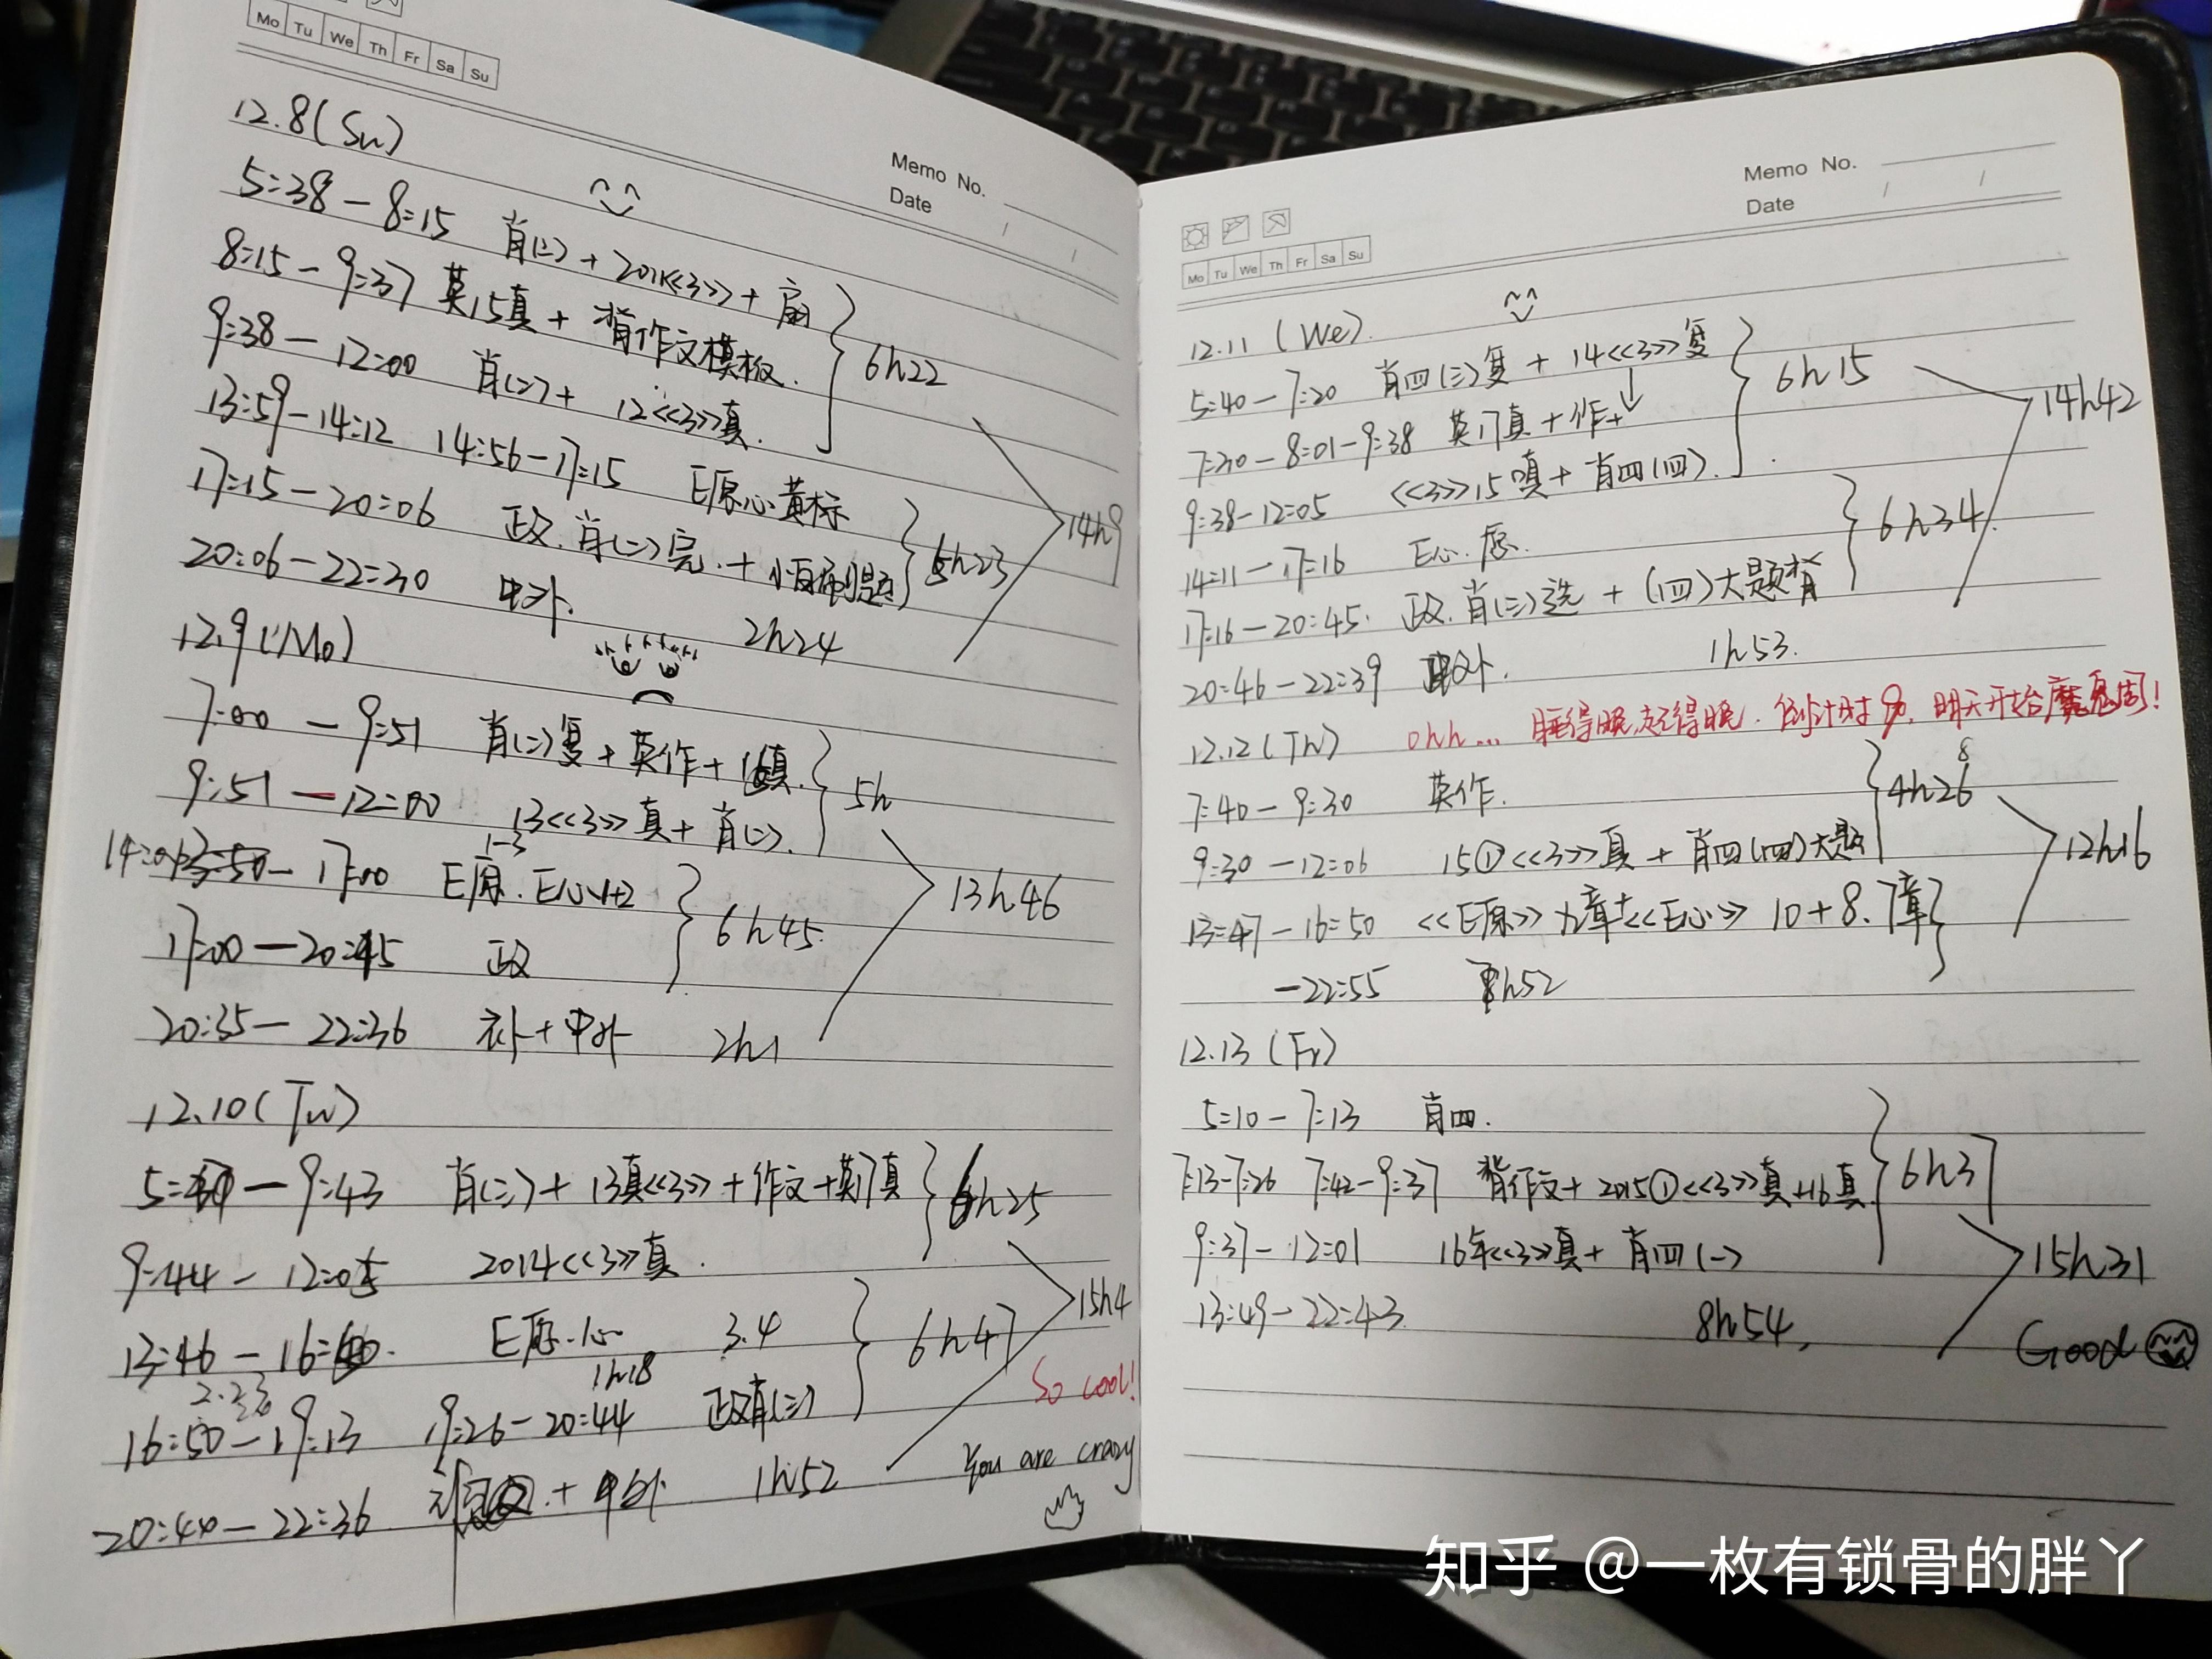 Mo Tu We Th Fr Sa Su
Memo No.
Date / /
12.8(Su)
5:38-8:15 肖(二)+2011<<3>>+
8:15-9:37 英15真+背作文模板.
9:38-12:00 肖(二)+ 12<<3>>真.
6h22
13:59-14:12 14:56-17:15 E原心黄标
17:15-20:06 政.肖(二)完.+小百刷题
5h23
14h9
20:06-22:30 中外.
2h24
12.9(Mo)
7:00-9:51 肖(二)复+英作+16真.
9:51-12:00 13<<3>>真+肖(二).
5h
14:0 17:00 E原.E心1+2
1-3
17:00-20:45 政
6h45
13h46
20:35-22:36 补+中外 2h1
12.10(Tu)
5: -9:43 肖(三)+13真<<3>>+作文+英17真
9:44-12:05 2014<<3>>真.
6h25
13:46-16: E原 3.4
2.23 1h18
16:50-19:13 19:26-20:44 政肖(三)
6h47
15h4
So cool!
20:44-22:36 +中外. 1h52
You are crazy
Memo No.
Date / /
Mo Tu We Th Fr Sa Su
12.11(We).
5:40-7:20 肖四(三)复+14<<3>>复
7:30-8:01-9:38 英17真+作+
9:38-12:05 <<3>>15真+肖四(四).
6h15
14h42
14:11-17:16 E心.原.
17:16-20:45. 政.肖(三)选+(四)大题背
6h34.
20:46-22:39 中外. 1h53.
12.12(Th) ohh... 睡得晚起得晚.倒计时9.明天开始魔鬼周!
7:40-9:30 英作.
8
4h26
9:30-12:06 15①<<3>>真+肖四(四)大题
12h16
13:47-16:50 <<E原>>九章+<<E心>>10+8.7章
-22:55 h52
12.13(Fr)
5:10-7:13 肖四.
7:13-7:26 7:42-9:37 背作文+2015①<<3>>真+16真
6h37
9:37-12:01 16年<<3>>真+肖四(一)
15h31
13:49-22:43. 8h54.
Good
知乎 @一枚有锁骨的胖丫